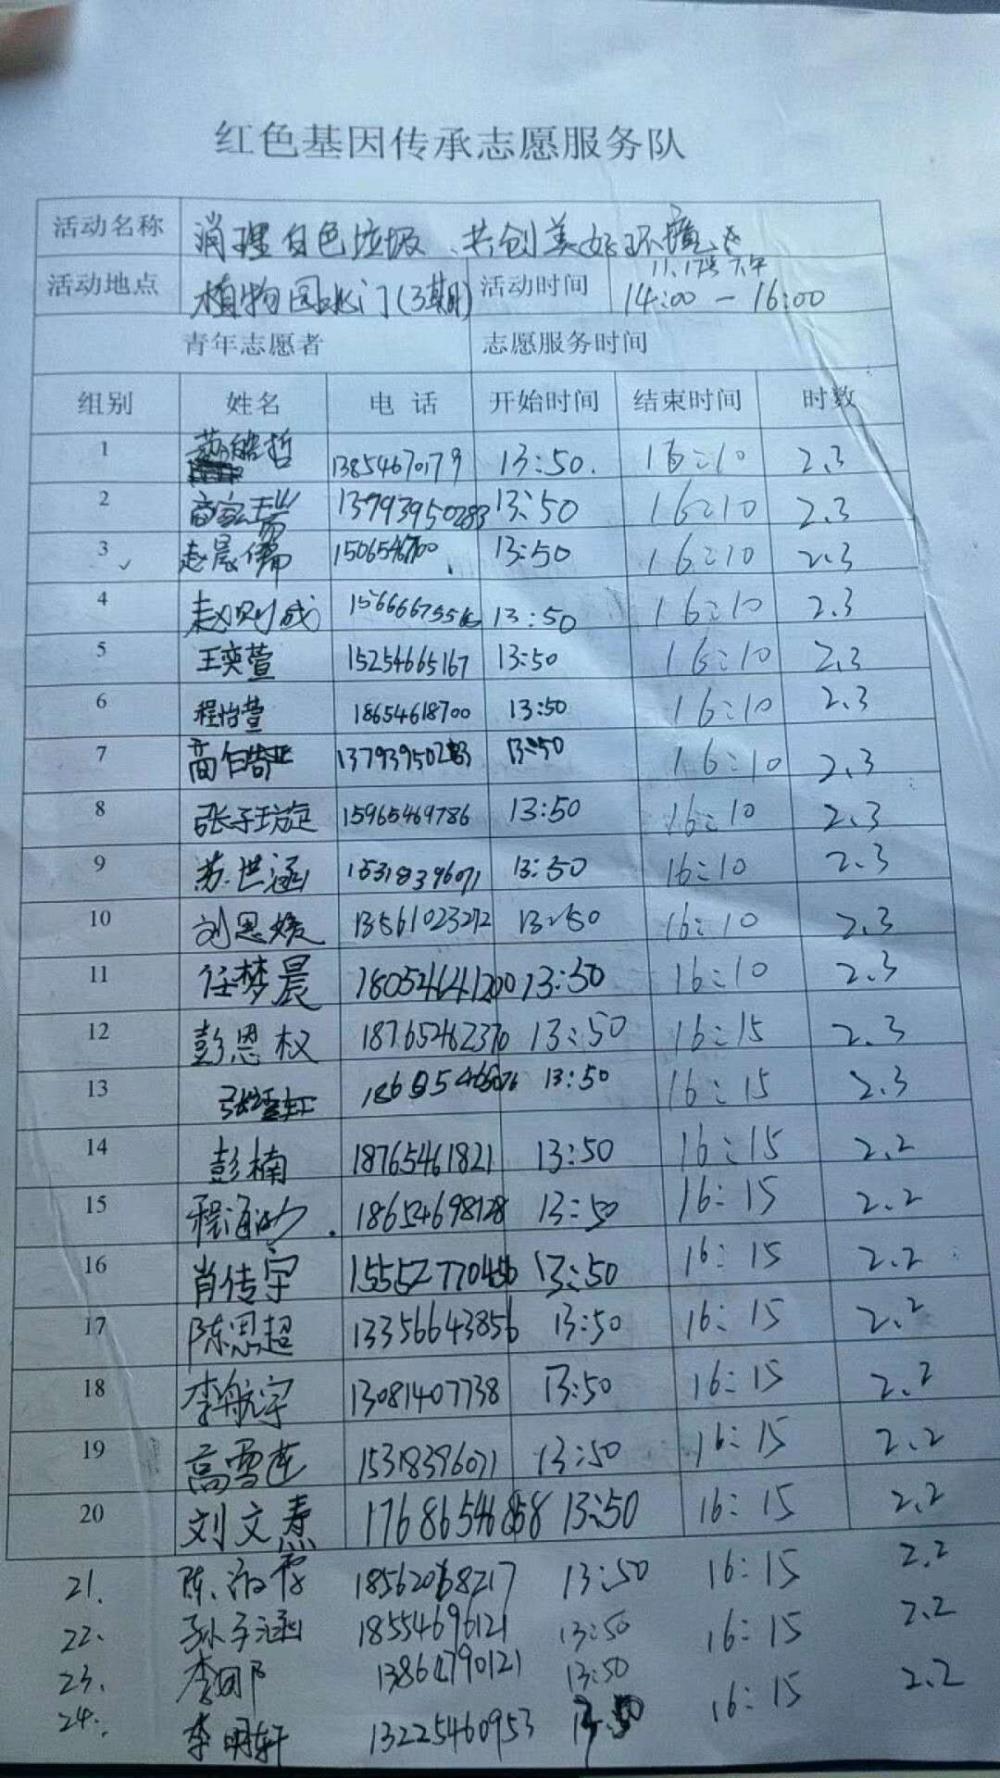 红色基因传承志愿服务队
活动名称 消理白色垃圾、共创美好环境
活动地点 植物园北门(3期) 活动时间 11.17号下午 14:00-16:00
青年志愿者 志愿服务时间
组别 姓名 电话 开始时间 结束时间 时数
1 13854670179 13:50. 16:10 2.3
2 13793950283 13:50 16:10 2.3
3 赵晨儒 13:50 16:10 2.3
4 赵则成 13:50 16:10 2.3
5 王奕萱 15254665167 13:50 16:10 2.3
6 程怡萱 18654618700 13:50 16:10 2.3
7 13793950283 13:50 16:10 2.3
8 张子璇 15965469786 13:50 16:10 2.3
9 苏世涵 15318396071 13:50 16:10 2.3
10 刘恩媛 13561023272 13:50 16:10 2.3
11 任梦晨 180524641200 13:50 16:10 2.3
12 彭恩权 18765462370 13:50 16:15 2.3
13 13:50 16:15 2.3
14 彭楠 18765461821 13:50 16:15 2.2
15 18654698128 13:50 16:15 2.2
16 肖传宇 13:50 16:15 2.2
17 陈思超 13356643856 13:50 16:15 2.2
18 李航宇 13081407738 13:50 16:15 2.2
19 高雪莲 15318396071 13:50 16:15 2.2
20 刘文焘 13:50 16:15 2.2
21. 18562068217 13:50 16:15 2.2
22. 孙子涵 18554696121 13:50 16:15 2.2
23. 13864790121 13:50 16:15 2.2
24. 李明轩 13225460953 13:50